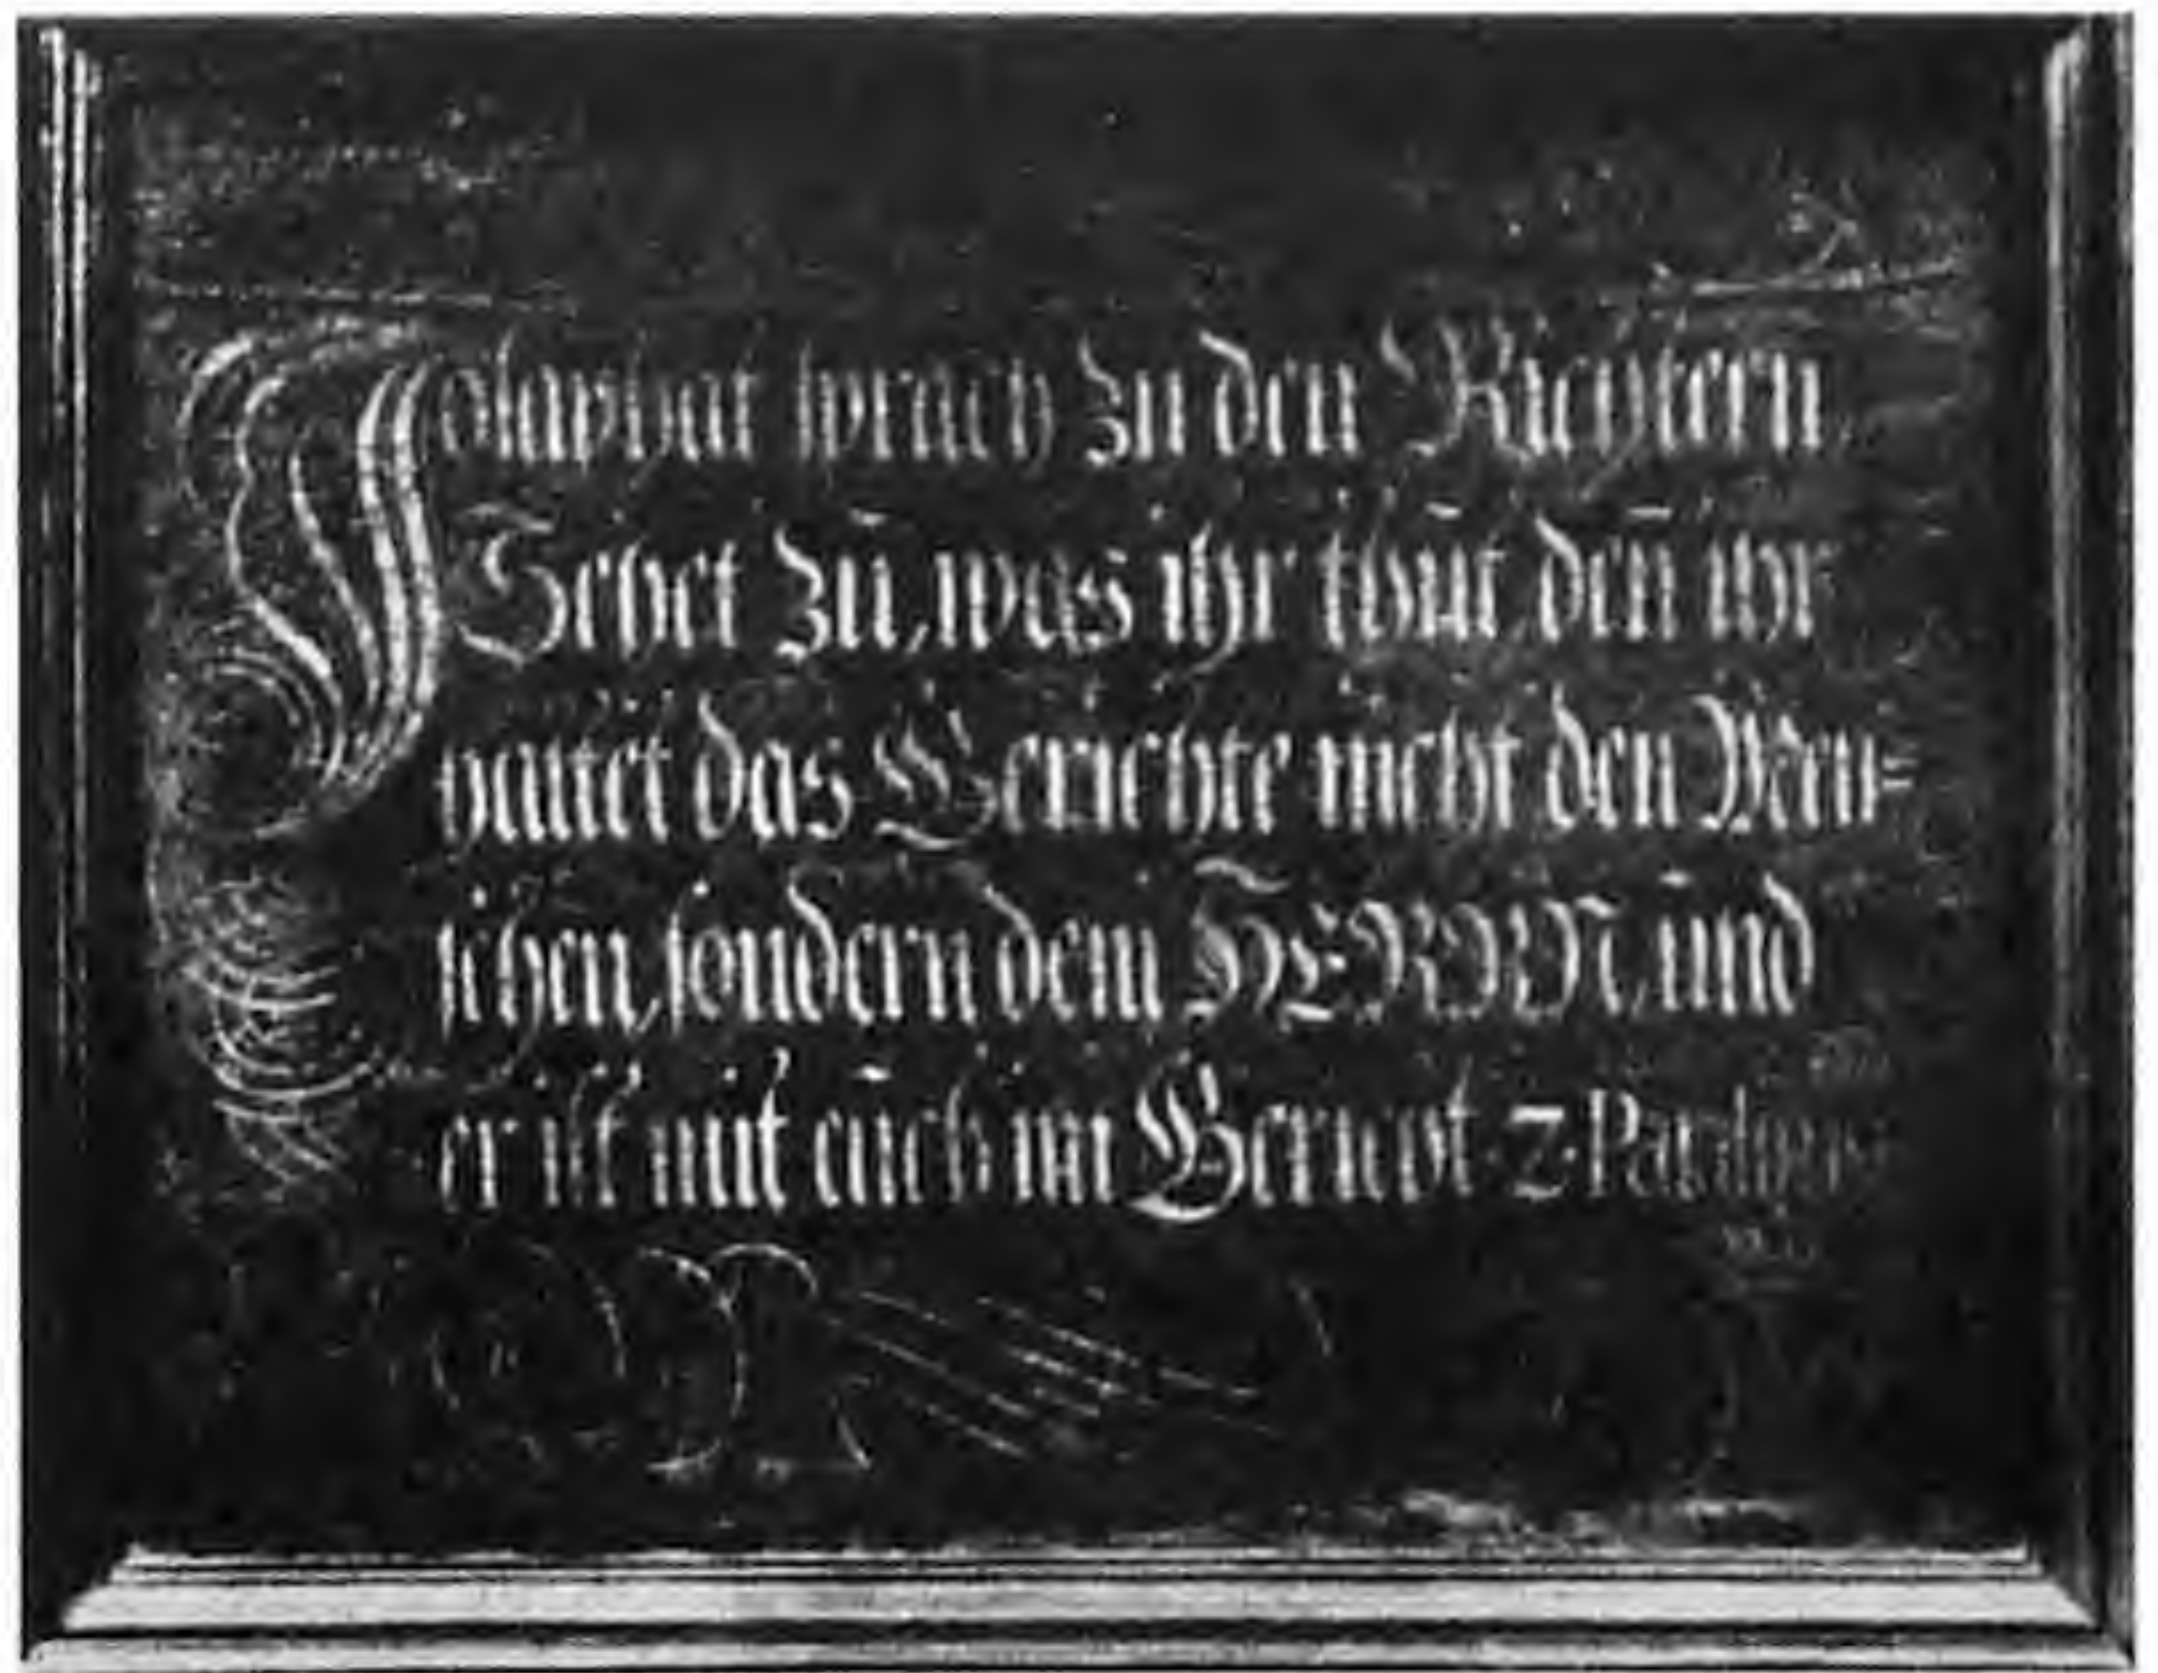 Josaphat sprach zu den Richtern,
Sehet zu, was ihr thut, den̄ ihr
haltet das Gerichte nicht den Men=
schen, sondern dem HERRN, und
er ist mit euch im Gericht. 2. Paralipom